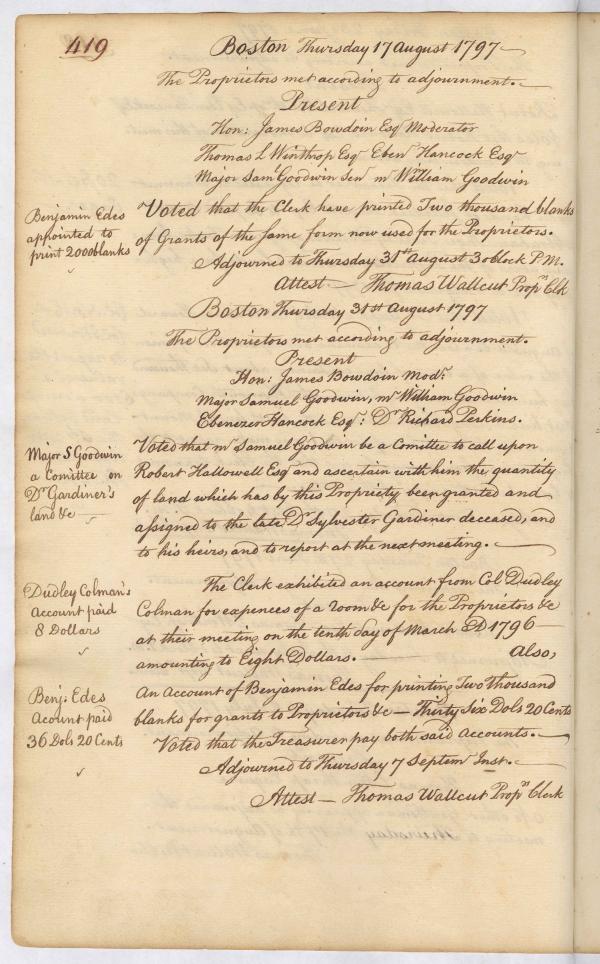 419
Boston Thursday 17 August 1797
The Proprietors met according to adjournment.
Present
Hon: James Bowdoin Esqr Moderator
Thomas L Winthrop Esqr Ebenr Hancock Esqr
Major Saml Goodwin Senr mr William Goodwin
Benjamin Edes
appointed to
print 2000 blanks
Voted that the Clerk have printed Two thousand blanks
of Grants of the same form now used for the Proprietors.
Adjourned to Thursday 31st August 3 oClock P.M.
Attest — Thomas Wallcut Proprs Clk
Boston Thursday 31st August 1797
The Proprietors met according to adjournment.
Present
Hon: James Bowdoin Modr.
Major Samuel Goodwin, mr William Goodwin
Ebenezer Hancock Esqr: Dr Richard Perkins.
Major S Goodwin
a Comittee on
Dr Gardiner's
land &c
Voted that mr Samuel Goodwin be a Comittee to call upon
Robert Hallowell Esqr and ascertain with him the quantity
of land which has by this Propriety been granted and
assigned to the late Dr Sylvester Gardiner deceased, and
to his heirs, and to report at the next meeting.
Dudley Colman's
Account paid
8 Dollars
The Clerk exhibited an account from Col Dudley
Colman for expences of a room &c for the Proprietors &c
at their meeting on the tenth day of March AD 1796
amounting to Eight Dollars. — Also,
Benj. Edes
Acount paid
36 Dols 20 Cents
an account of Benjamin Edes for printing Two thousand
blanks for grants to Proprietors &c — Thirty Six Dols 20 Cents
Voted that the Treasurer pay both said accounts.
Adjourned to Thursday 7 Septemr Inst.
Attest — Thomas Wallcut Proprs Clerk